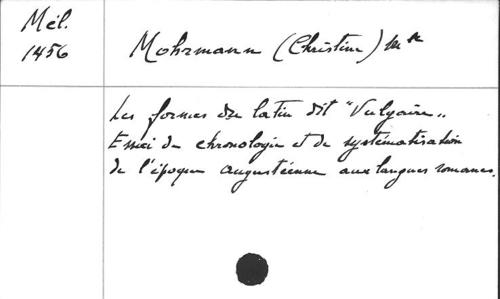 Mél.
1456
Mohrmann (Christine) Mlle
Les formes du latin dit "Vulgaire„
Essai de chronologie et de systématisation
de l'époque augustéenne aux langues romanes.